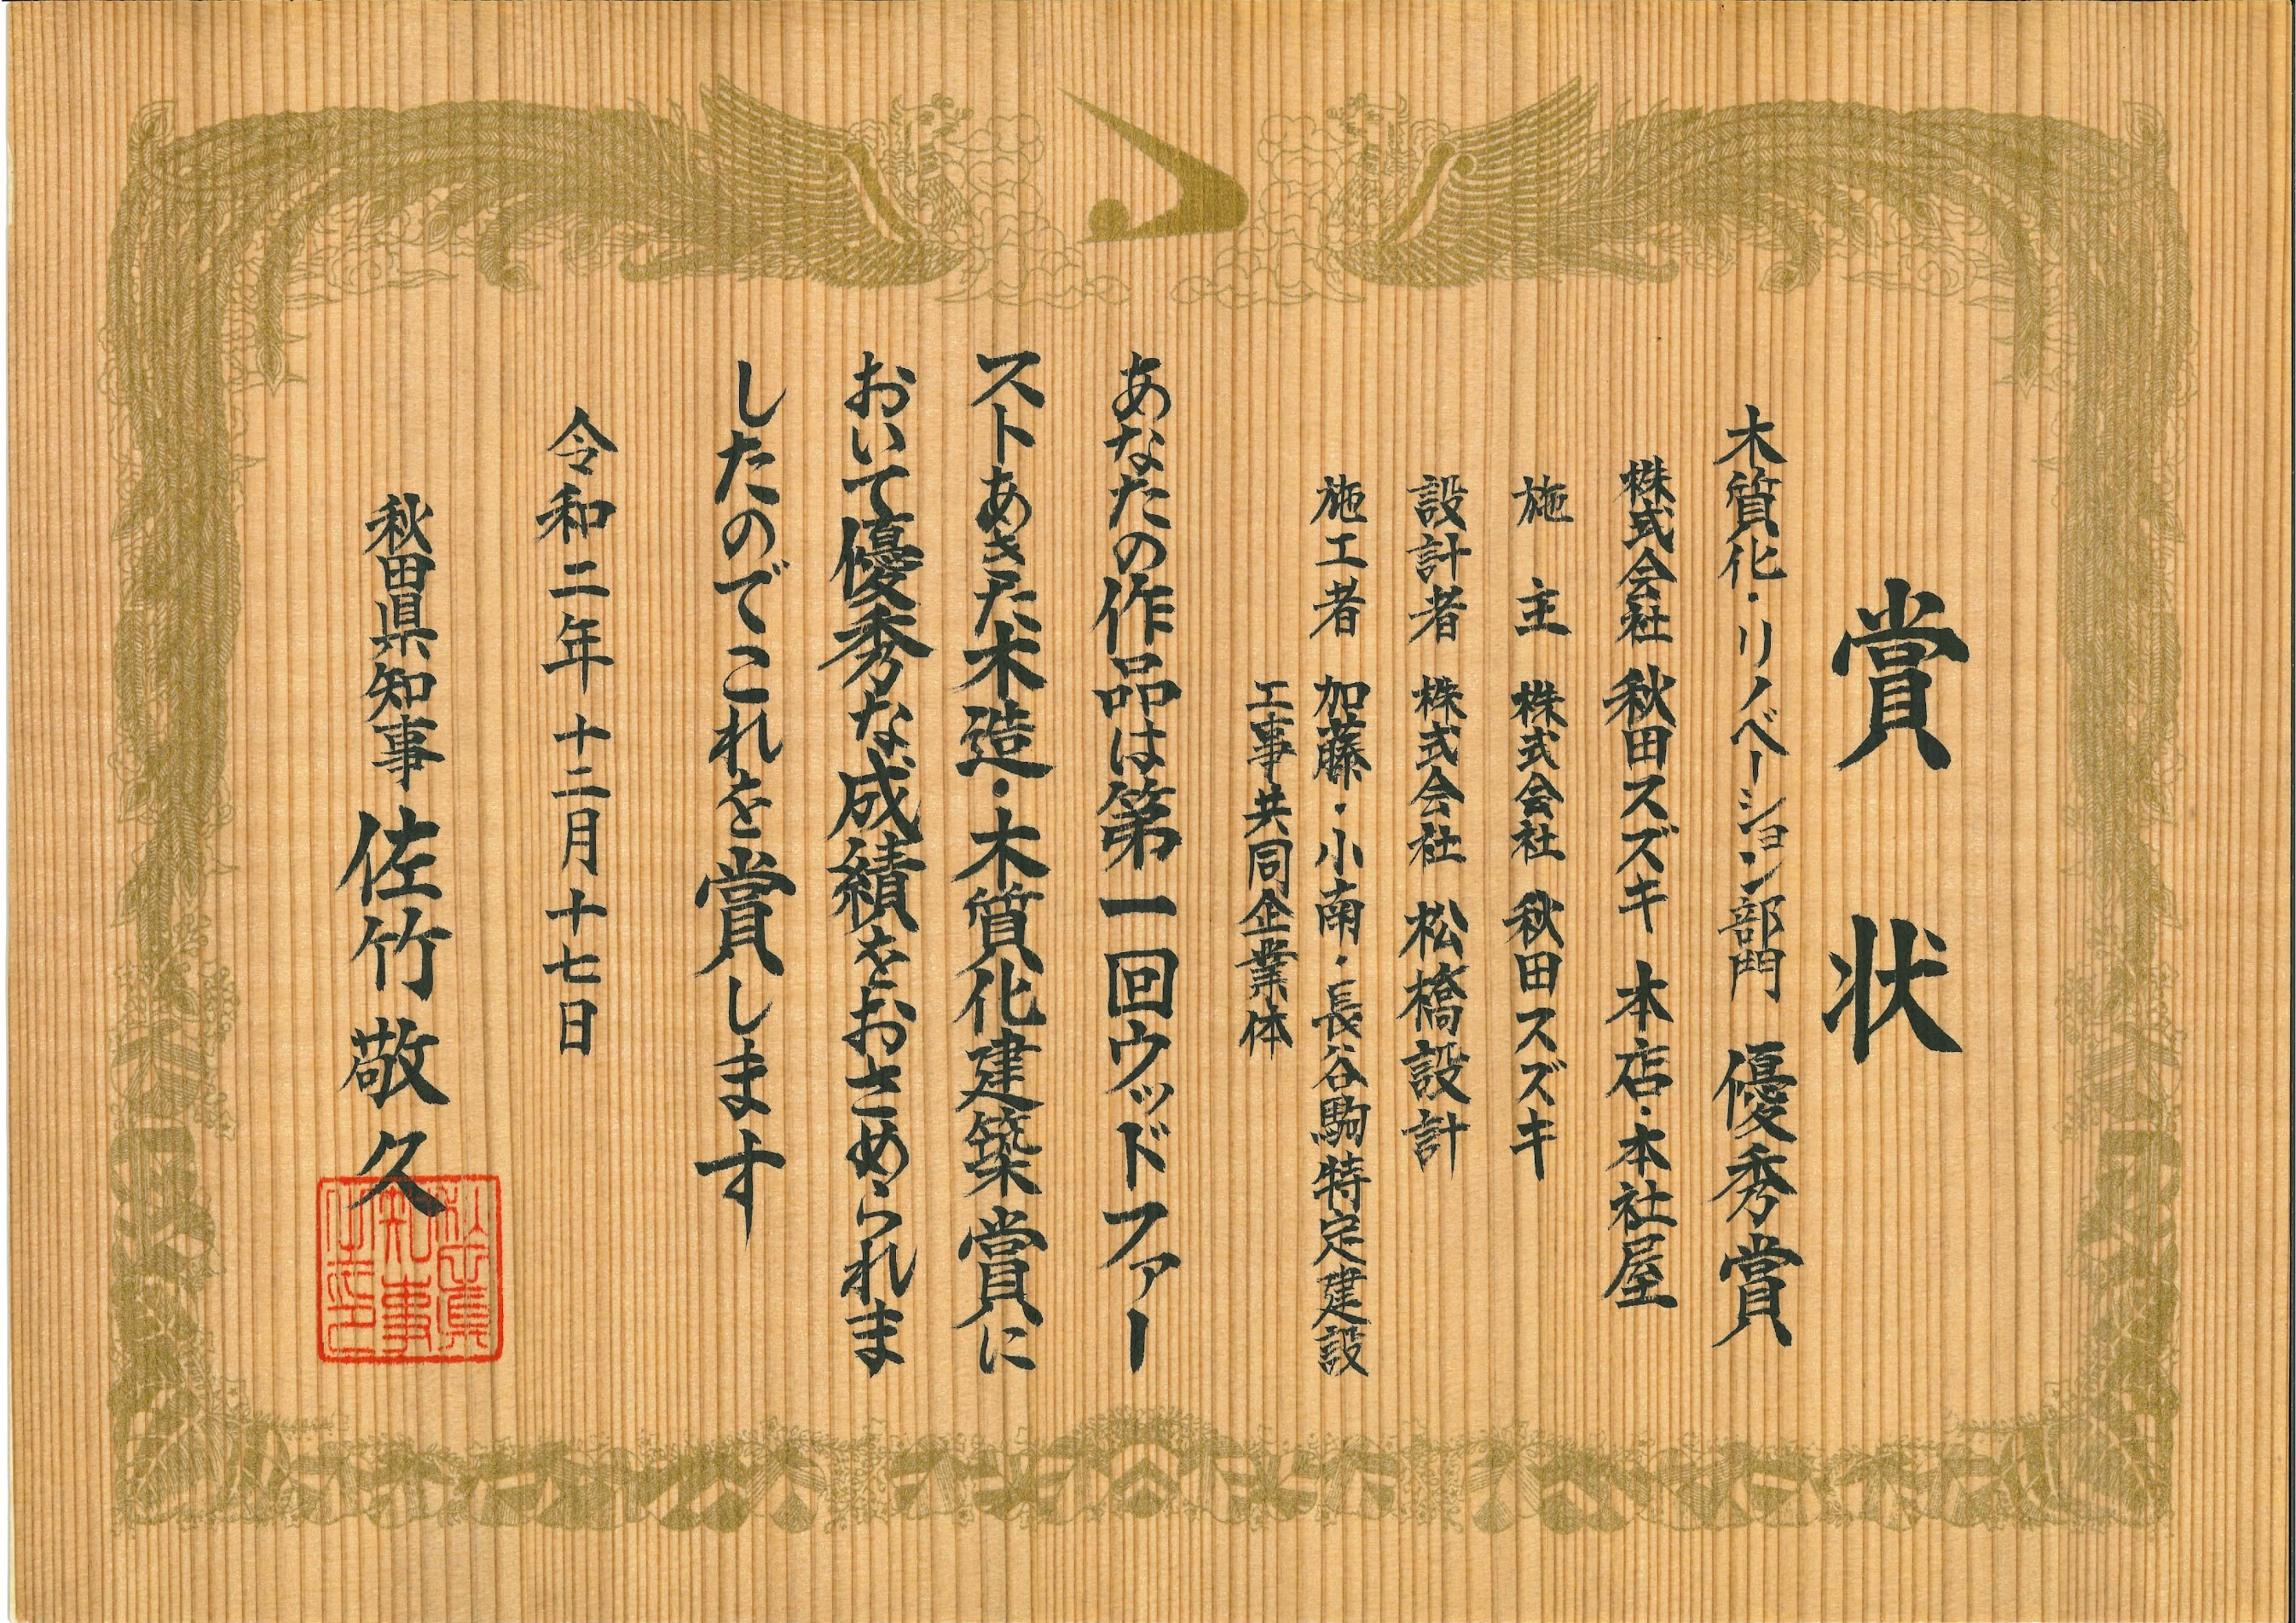 賞状
木質化・リノベーション部門 優秀賞
株式会社 秋田スズキ 本店・本社屋
施主 株式会社 秋田スズキ
設計者 株式会社 松橋設計
施工者 加藤・小南・長谷駒特定建設
工事共同企業体
あなたの作品は第一回ウッドファー
ストあきた木造・木質化建築賞に
おいて優秀な成績をおさめられま
したのでこれを賞します
令和二年十二月十七日
秋田県知事 佐竹敬久